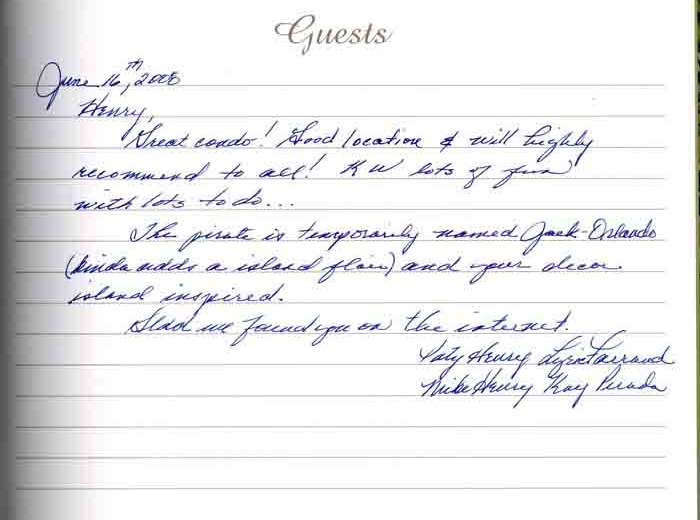 Guests
June 16th, 2008
Henry,
Great condo! Good location & will highly
recommend to all! KW lots of fun
with lots to do...
The pirate is temporarily named Jack-Orlando
(kinda adds a island flair) and your decor
island inspired.
Glad we found you on the internet.
Paty Henry
Mike Henry Kay